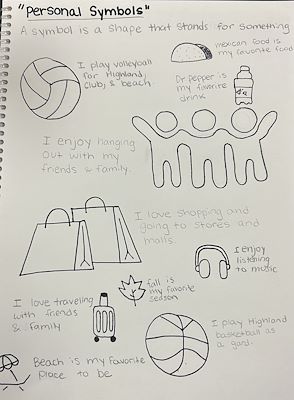 "Personal Symbols"
A symbol is a shape that stands for something
mexican food is
my favorite food
I play volleyball
for Highland,
Club, & beach
Dr Pepper is
my favorite
drink
I enjoy hanging
out with my
friends & family.
I love shopping and
going to stores and
malls.
I enjoy
listening
to music
fall is
my favorite
season
I love traveling
with friends
& family
I play Highland
basketball as
a gard.
Beach is my favorite
place to be